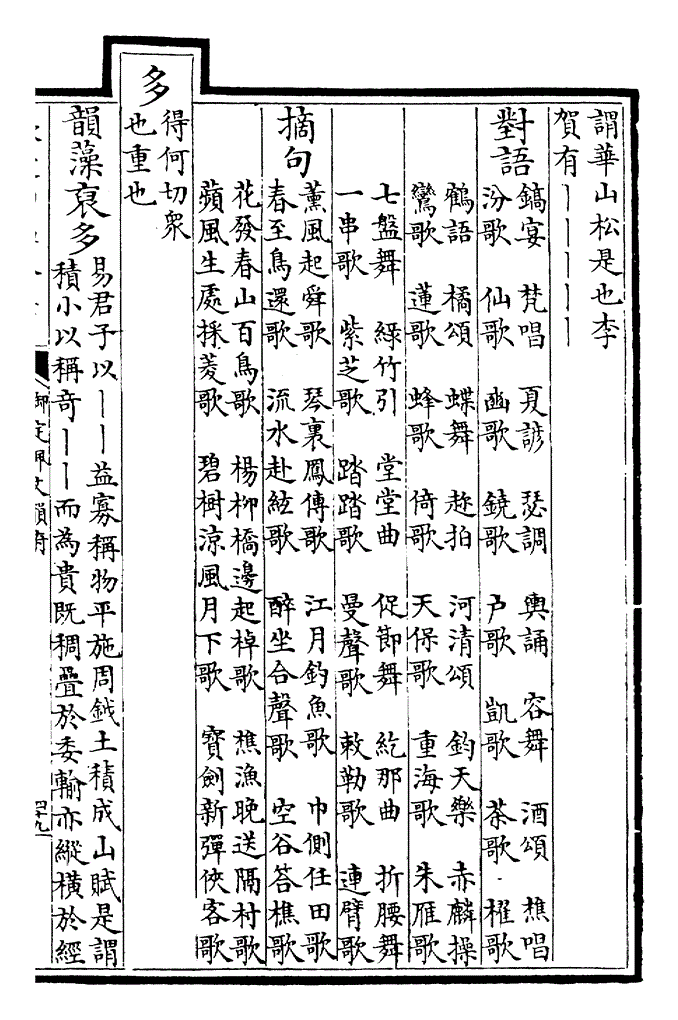 謂華山松是也李
賀有｜｜｜｜｜
對語
鎬宴　梵唱　夏諺　瑟調　輿誦　容舞　酒頌　樵唱
汾歌　仙歌　豳歌　鐃歌　戶歌　凱歌　茶歌　櫂歌
鶴語　橘頌　蝶舞　趂拍　河清頌　鈞天樂　赤麟操
鸞歌　蓮歌　蜂歌　倚歌　天保歌　重海歌　朱雁歌
七盤舞　綠竹引　堂堂曲　促節舞　紇那曲　折腰舞
一串歌　紫芝歌　踏踏歌　曼聲歌　敕勒歌　連臂歌
摘句
薰風起舜歌　琴裏鳳傳歌　江月釣魚歌　巾側任田歌
春至鳥還歌　流水赴絃歌　醉坐合聲歌　空谷答樵歌
花發春山百鳥歌　楊柳橋邊起棹歌　樵漁晚送隔村歌
蘋風生處採菱歌　碧樹涼風月下歌　寶劍新彈俠客歌
多
得何切衆
也重也
韻藻裒多
易君子以｜｜益寡稱物平施周鉞土積成山賦是謂
積小以稱奇｜｜而為貴既稠疊於委輸亦縱橫於經
御定佩文韻府
四十九